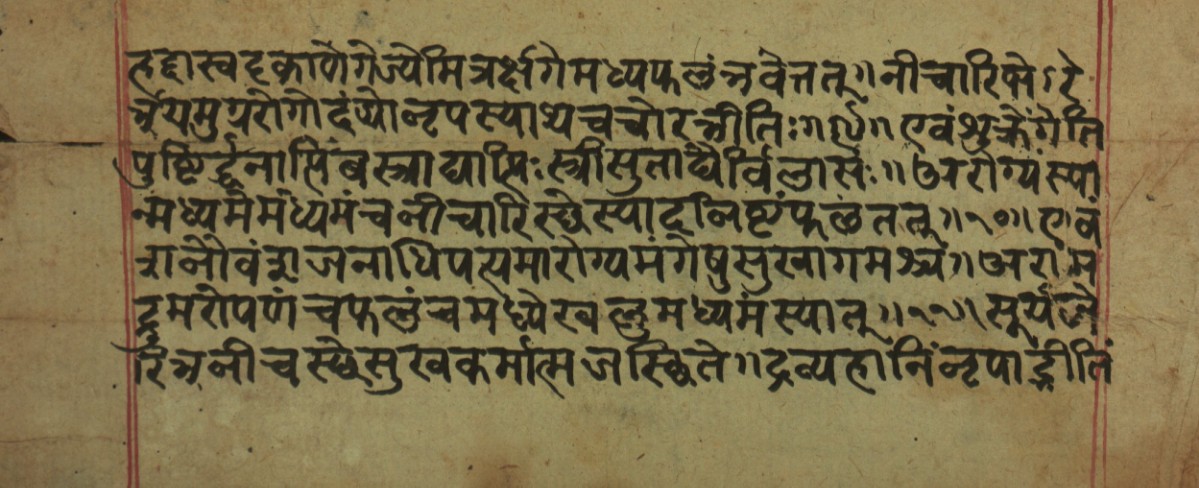 हद्दास्वदृकाणेगेज्येमित्रर्क्षगेमध्यफलंभवेत्ततु॥नीचारिभे
र्भयमुग्ररोगोदंष्योनृपस्याथचचोरभीतिः॥९॥एवंभृक्रेंगेति
पुष्टिर्द्धनाप्तिंबस्त्राद्याप्तिःस्त्रीसुताद्यैर्विलासः॥आरोग्यंस्या
न्मध्यमेमंध्यमंचनीचारिस्थेस्यादनिष्टंफलंतत्॥१०॥एवं
शनौवंशजनाधिपत्यमारोग्यमंगेषुसुखागमश्च॥अराम
द्रुमरोपणंचफलंचमध्येखलुमध्यमंस्यात्॥११॥सूर्येजे
रिभनीचस्थेसुखकर्मात्मजस्थिते॥द्रव्यहानिंनृपाद्भीतिं